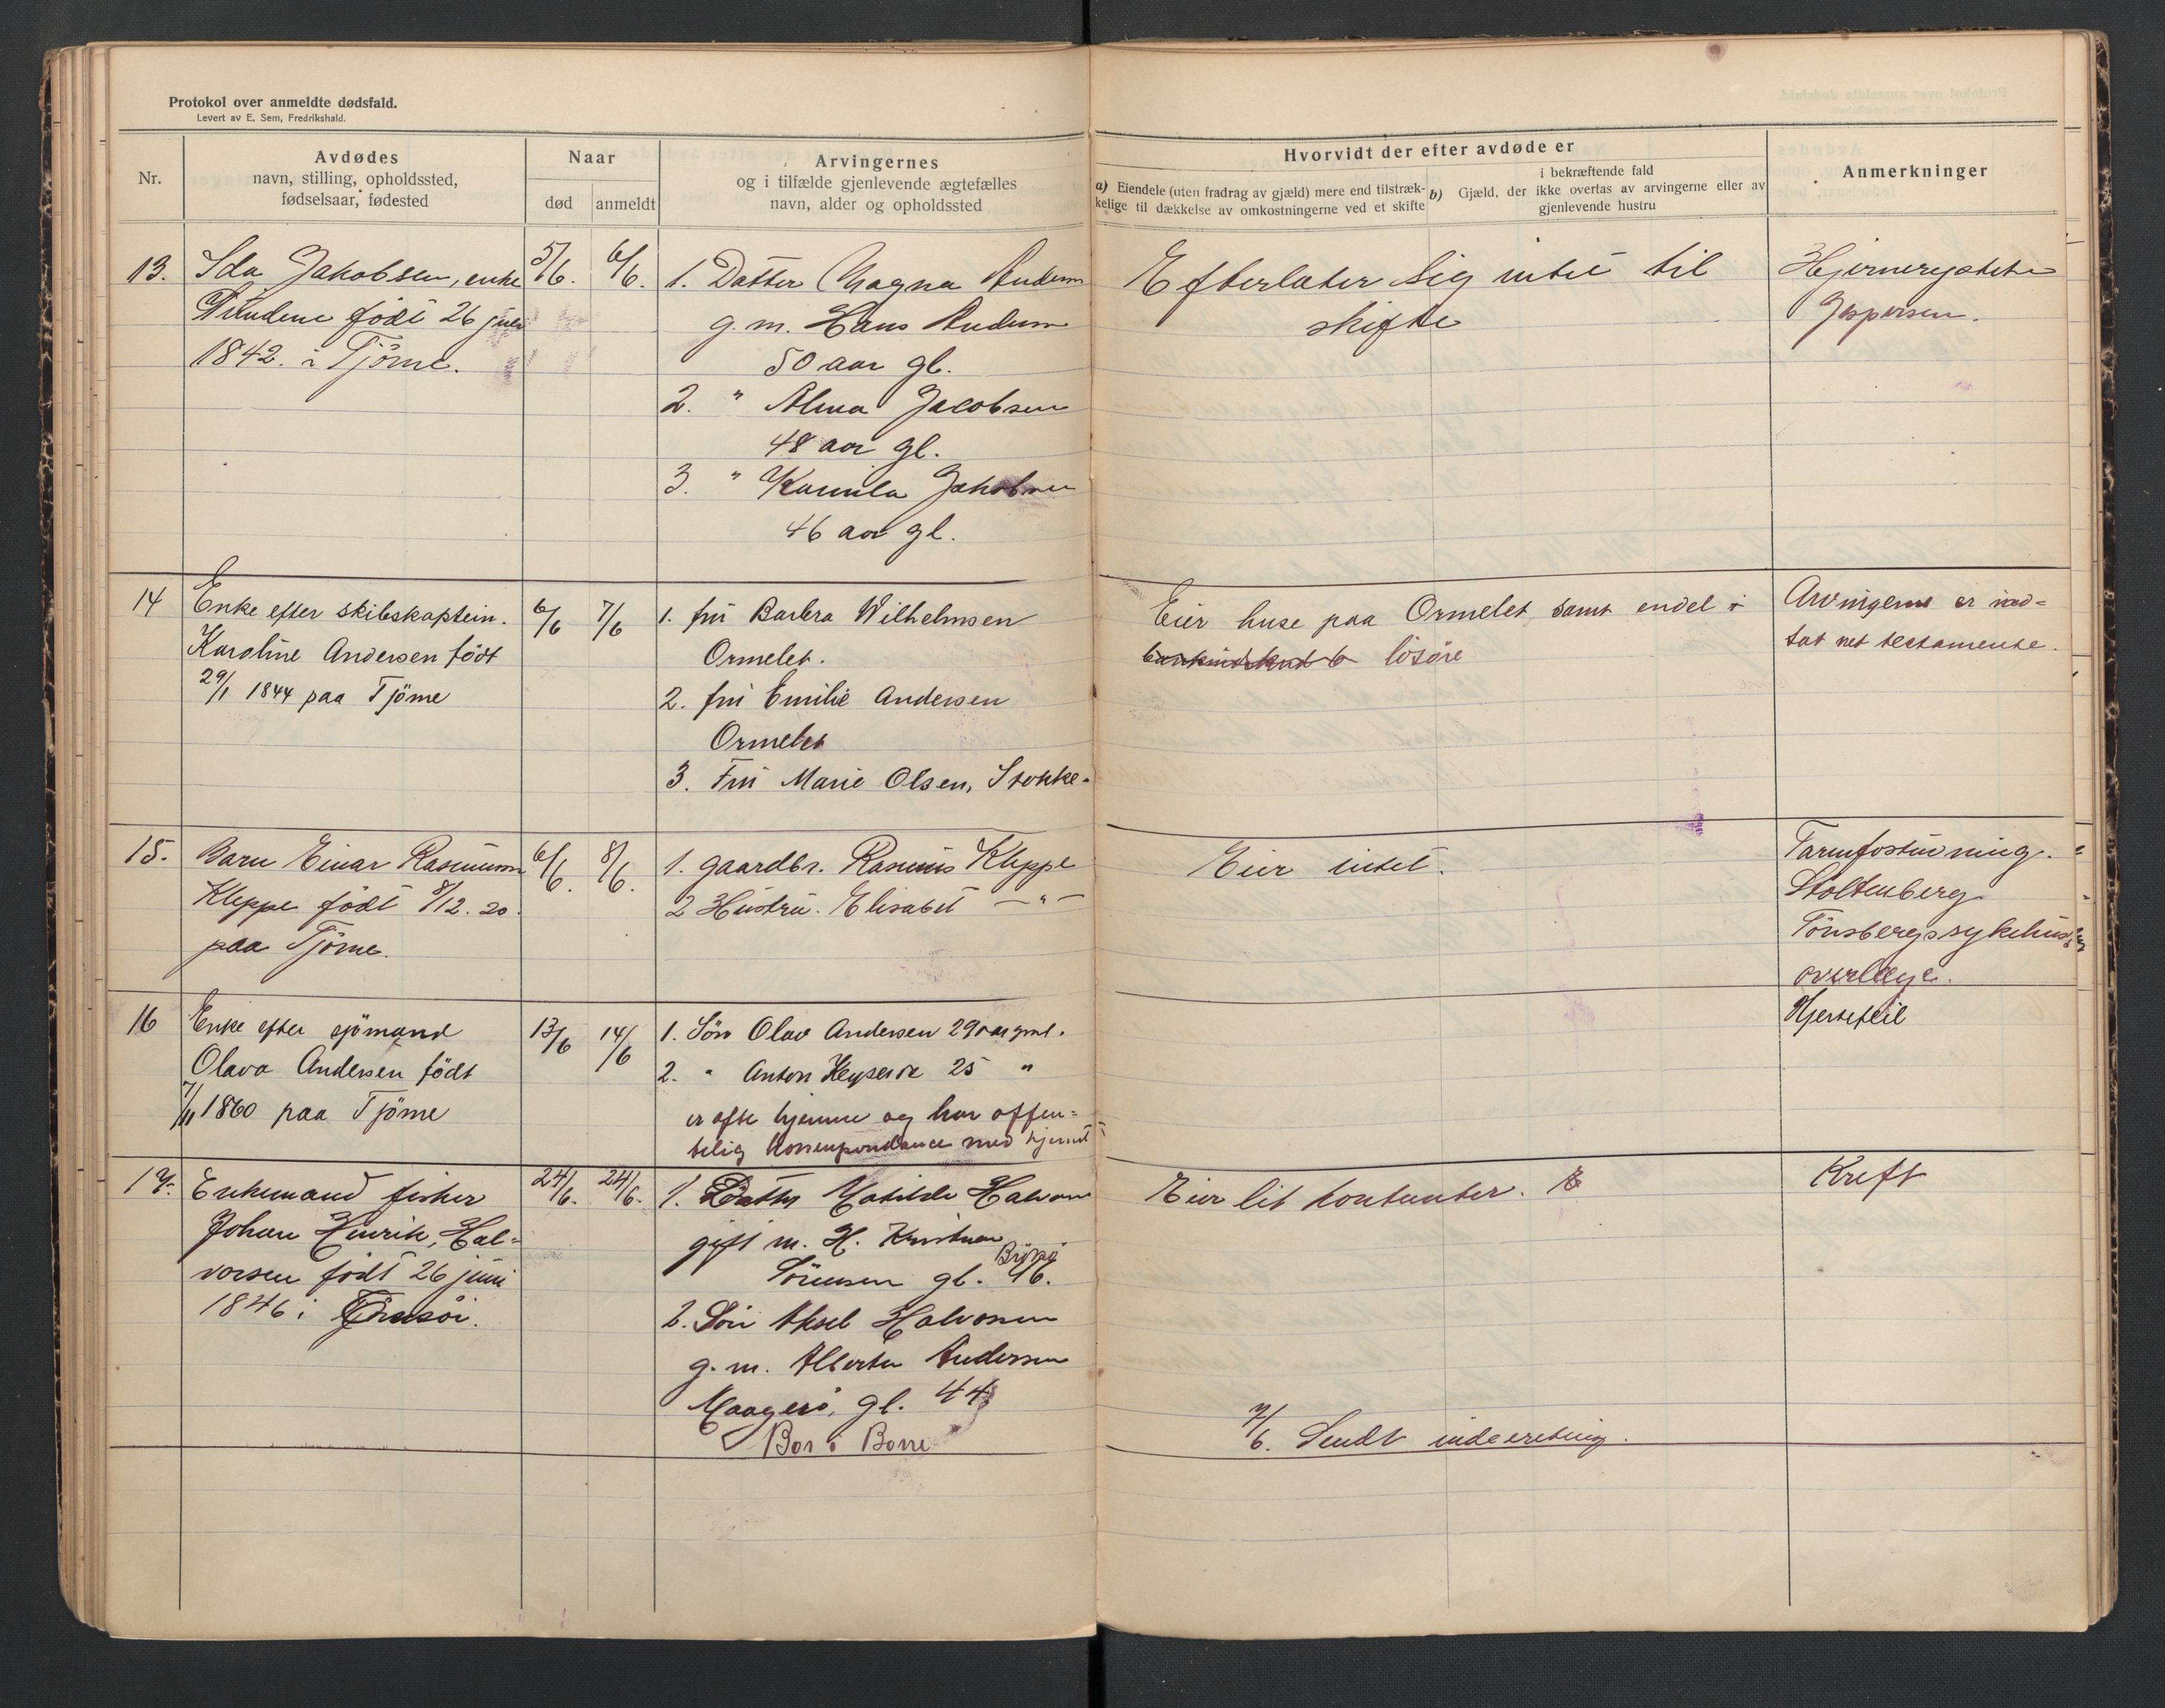 Protokol over anmeldte dødsfald.
Levert av E. Sem, Fredrikshald.
Nr.
Avdødes
navn, stilling, opholdssted,
fødselsaar, fødested
Naar
død
anmeldt
Arvingernes
og i tilfælde gjenlevende ægtefælles
navn, alder og opholdssted
Hvorvidt der efter avdøde er
a) Eiendele (uten fradrag av gjæld) mere end tilstræk-
kelige til dækkelse av omkostningerne ved et skifte
i bekræftende fald
b) Gjæld, der ikke overtas av arvingerne eller av
gjenlevende hustru
Anmerkninger
13.
Ida Jakobsen, enke
født 26 juli
1842. i Tjöme.
5/6.
6/6.
1. Datter Magna Andersen
g. m. Hans Andersen
50 aar gl.
2. " Alma Jacobsen
48 aar gl.
3. " Kamila Jakobsen
46 aar gl.
Efterlater sig intet til
skifte
Hjernerystelse
Jespersen.
14
Enke efter skibskaptein.
Karoline Andersen födt
29/1 1844 paa Tjöme
6/6
7/6
1. fru Barbra Wilhelmsen
Ormelet.
2. fru Emilie Andersen
Ormelet
3. Fru Marie Olsen, Stokke.
Eier huse paa Ormelet samt endel i
lösöre
Arvingerne er ind=
sat ved testamente.
15.
Barn Einar Rasmussen
Kleppe födt 8/12. 20.
paa Tjöme.
6/6.
8/6.
1. gaardbr. Rasmus Kleppe
2 Hustru. Elisabet — " —
Eier intet.
Tarmforstuvning.
Stoltenberg
Tönsbergs sykehus
overlæge.
16
Enke efter sjömand
Olava Andersen födt
7/11 1860 paa Tjöme
13/6
14/6
1. Sön Olav Andersen 29 aar gml.
2. " Anton 25 "
er ofte hjemme og har offen=
telig korrespondance med hjemmet
Hjertefeil
17.
Enkemand fisker
Johan Henrik, Hal=
vorsen födt 26 juni
1846 i
24/6.
24/6.
1. Datter Matilde Halvorsen
gift m. H. Kristian
Sörensen gl. 46.
Brötsö
2. Sön Aksel Halvorsen
g. m. Alberta Andersen
Maagerö, gl. 44
Bor i Borre
Eier lit kontanter.
Kreft
7/6. Sendt indberetning.